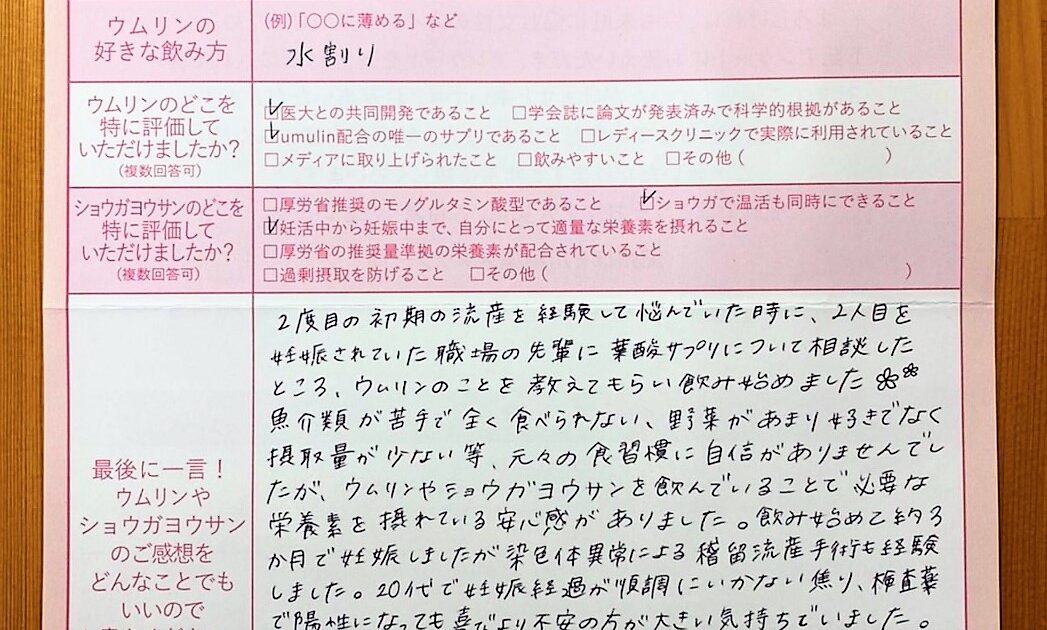 ウムリンの
好きな飲み方
(例)「〇〇に薄める」など
水割り
ウムリンのどこを
特に評価して
いただけましたか？
(複数回答可)
☑医大との共同開発であること □学会誌に論文が発表済みで科学的根拠があること
☑umulin配合の唯一のサプリであること □レディースクリニックで実際に利用されていること
□メディアに取り上げられたこと □飲みやすいこと □その他( )
ショウガヨウサンのどこを
特に評価して
いただけましたか？
(複数回答可)
□厚労省推奨のモノグルタミン酸型であること ☑ショウガで温活も同時にできること
☑妊活中から妊娠中まで、自分にとって適量な栄養素を摂れること
□厚労省の推奨量準拠の栄養素が配合されていること
□過剰摂取を防げること □その他( )
最後に一言！
ウムリンや
ショウガヨウサン
のご感想を
どんなことでも
いいので
2度目の初期の流産を経験して悩んでいた時に、2人目を
妊娠されていた職場の先輩に葉酸サプリについて相談した
ところ、ウムリンのことを教えてもらい飲み始めました
魚介類が苦手で全く食べられない、野菜があまり好きでなく
摂取量が少ない等、元々の食習慣に自信がありませんでし
たが、ウムリンやショウガヨウサンを飲んでいることで必要な
栄養素を摂れている安心感がありました。飲み始めて約3
か月で妊娠しましたが染色体異常による稽留流産手術も経験
しました。20代で妊娠経過が順調にいかない焦り、検査薬
で陽性になっても喜びより不安の方が大きい気持ちでいました。